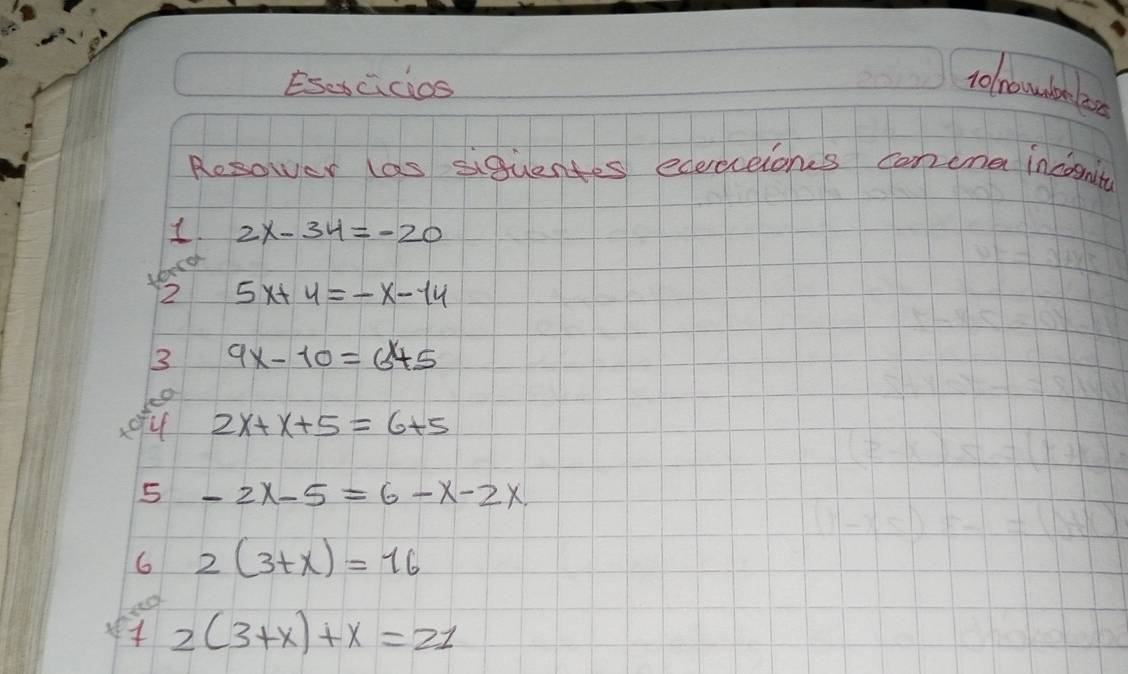 Esercicios
10/
Resolver las siguientes ecuaciones con una incógnita
1. 2x-34=-20
tarea
2 5x+4=-x-14
3 9x-10=6x+5
tarea
4 2x+x+5=6+5
5 -2x-5=6-x-2x.
6 2(3+x)=16
tarea
7 2(3+x)+x=21